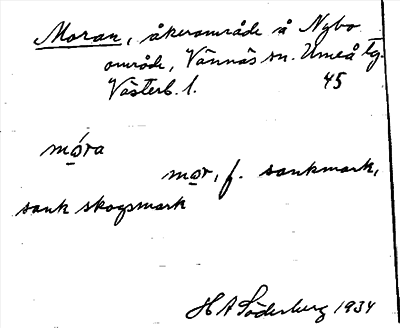 Moran, åkerområde å Nybo
område, Vännäs sn. Umeå tg.
Västerb. l. 45
móra
mor, f. sankmark,
sank skogsmark
H A Söderberg 1934